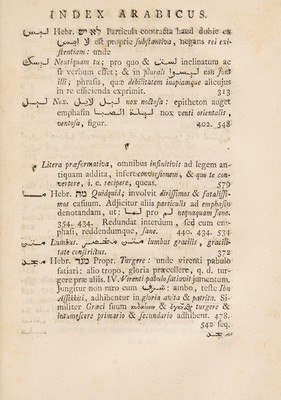 INDEX ARABICUS.
ليس Hebr. לא יש Particula contracta haud dubie ex
لا ايس est proprie substantiva, negans rei exi-
stentiam: unde
ليسك Neutiquam tu; pro quo & لست inclinatura ac
si verbum esset; & in plurali ليسوا non sunt
illi; phrasis, quæ debilitatem inopiamque alicujus
in re efficienda exprimit. 313
ليل Nox. ليل لايل nox noctosa: epitheton auget
emphasin ليلة الصبا nox venti orientalis,
ventosa, figur. 402. 548
م
Litera præformativa, omnibus infinitivis ad legem an-
tiquam addita, infert conversionem, & quo te con-
vertere, i. e. recipere, queas. 579
ما Hebr. מה Quidquid; involvit dirissimos & fatalissi-
mos casuum. Adjicitur aliis particulis ad emphasin
denotandam, ut: لما pro لم nequaquam sane.
354. 434. Redundat interdum, sed cum em-
phasi, reddendumque, sane. 440. 434. 534
متن Lumbus. lumbus gracilis, gracili-
tate constrictus. 372
مجد Hebr. מגד Propr. Turgere: unde virenti pabulo
satiari: alio tropo, gloria præcellere, q. d. tur-
gere præ aliis. IV. Virenti pabulo satiavit jumentum.
Jungitur non raro cum شرف: ambo, teste Ibn
Assikkiti, adhibentur in gloria avita & patrita. Si-
militer Græci suum & turgere &
intumescere primario & secundario adhibent. 478.
542 seq.
مجد